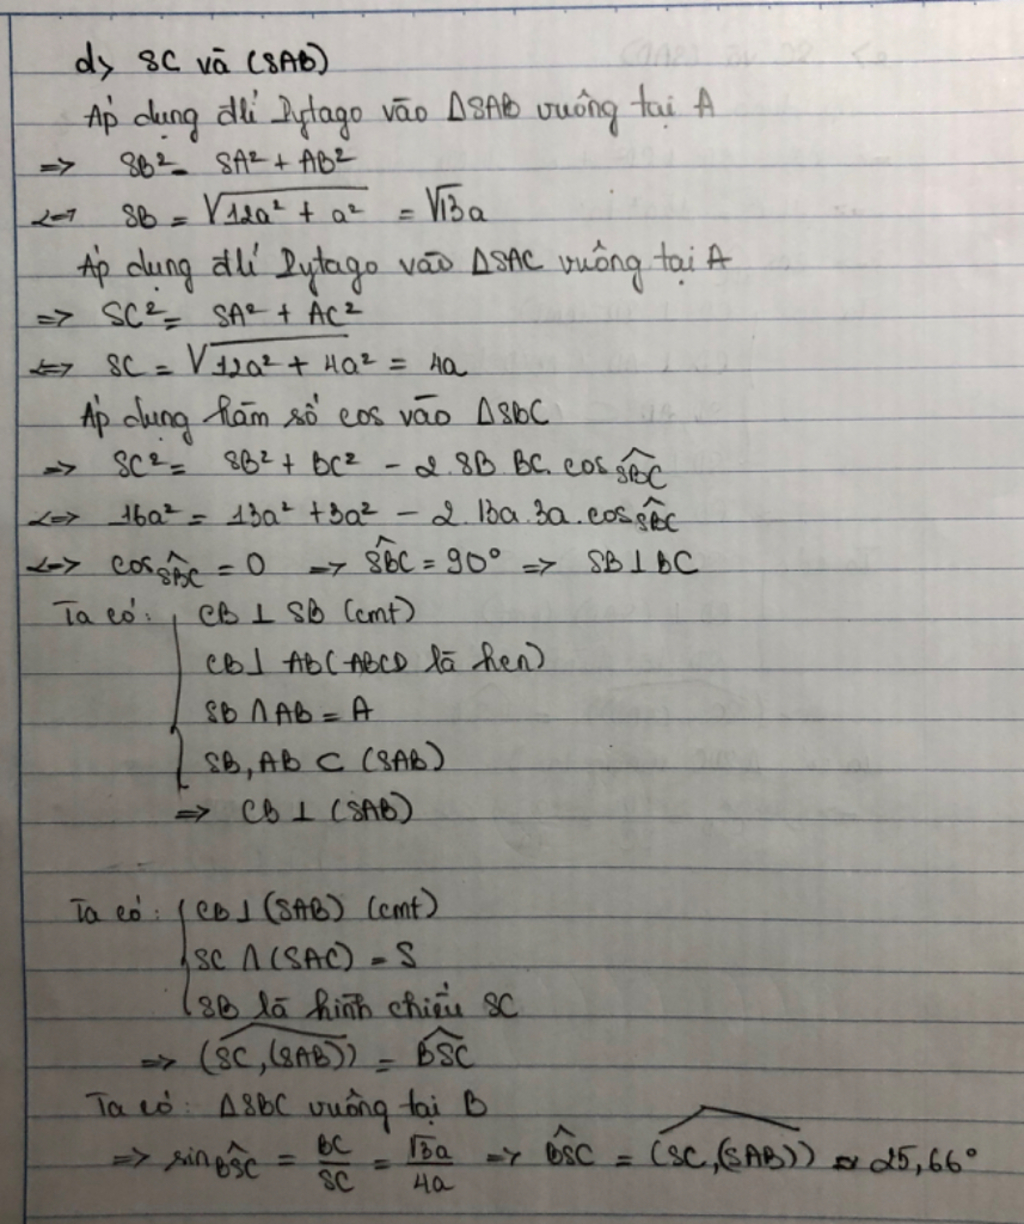 d> SC và (SAB)
Áp dụng đlí Pytago vào ΔSAB vuông tại A
=> SB² = SA² + AB²
<=> SB = √12a² + a² = √13a
Áp dụng đlí Pytago vào ΔSAC vuông tại A
=> SC² = SA² + AC²
<=> SC = √12a² + 4a² = 4a
Áp dụng hàm số cos vào ΔSBC
=> SC² = SB² + BC² - 2.SB.BC.cos SBC
<=> 16a² = 13a² + 3a² - 2.13a.3a.cos SBC
<=> cos SBC = 0 => SBC = 90° => SB ⊥ BC
Ta có: { CB ⊥ SB (cmt)
CB ⊥ AB (ABCD là hcn)
SB ∩ AB = A
SB, AB ⊂ (SAB)
=> CB ⊥ (SAB)
Ta có: { CB ⊥ (SAB) (cmt)
SC ∩ (SAC) = S
SB là hình chiếu SC
=> (SC,(SAB)) = BSC
Ta có: ΔSBC vuông tại B
=> sin BSC = BC/SC = √3a/4a => BSC = (SC,(SAB)) ≈ 25,66°